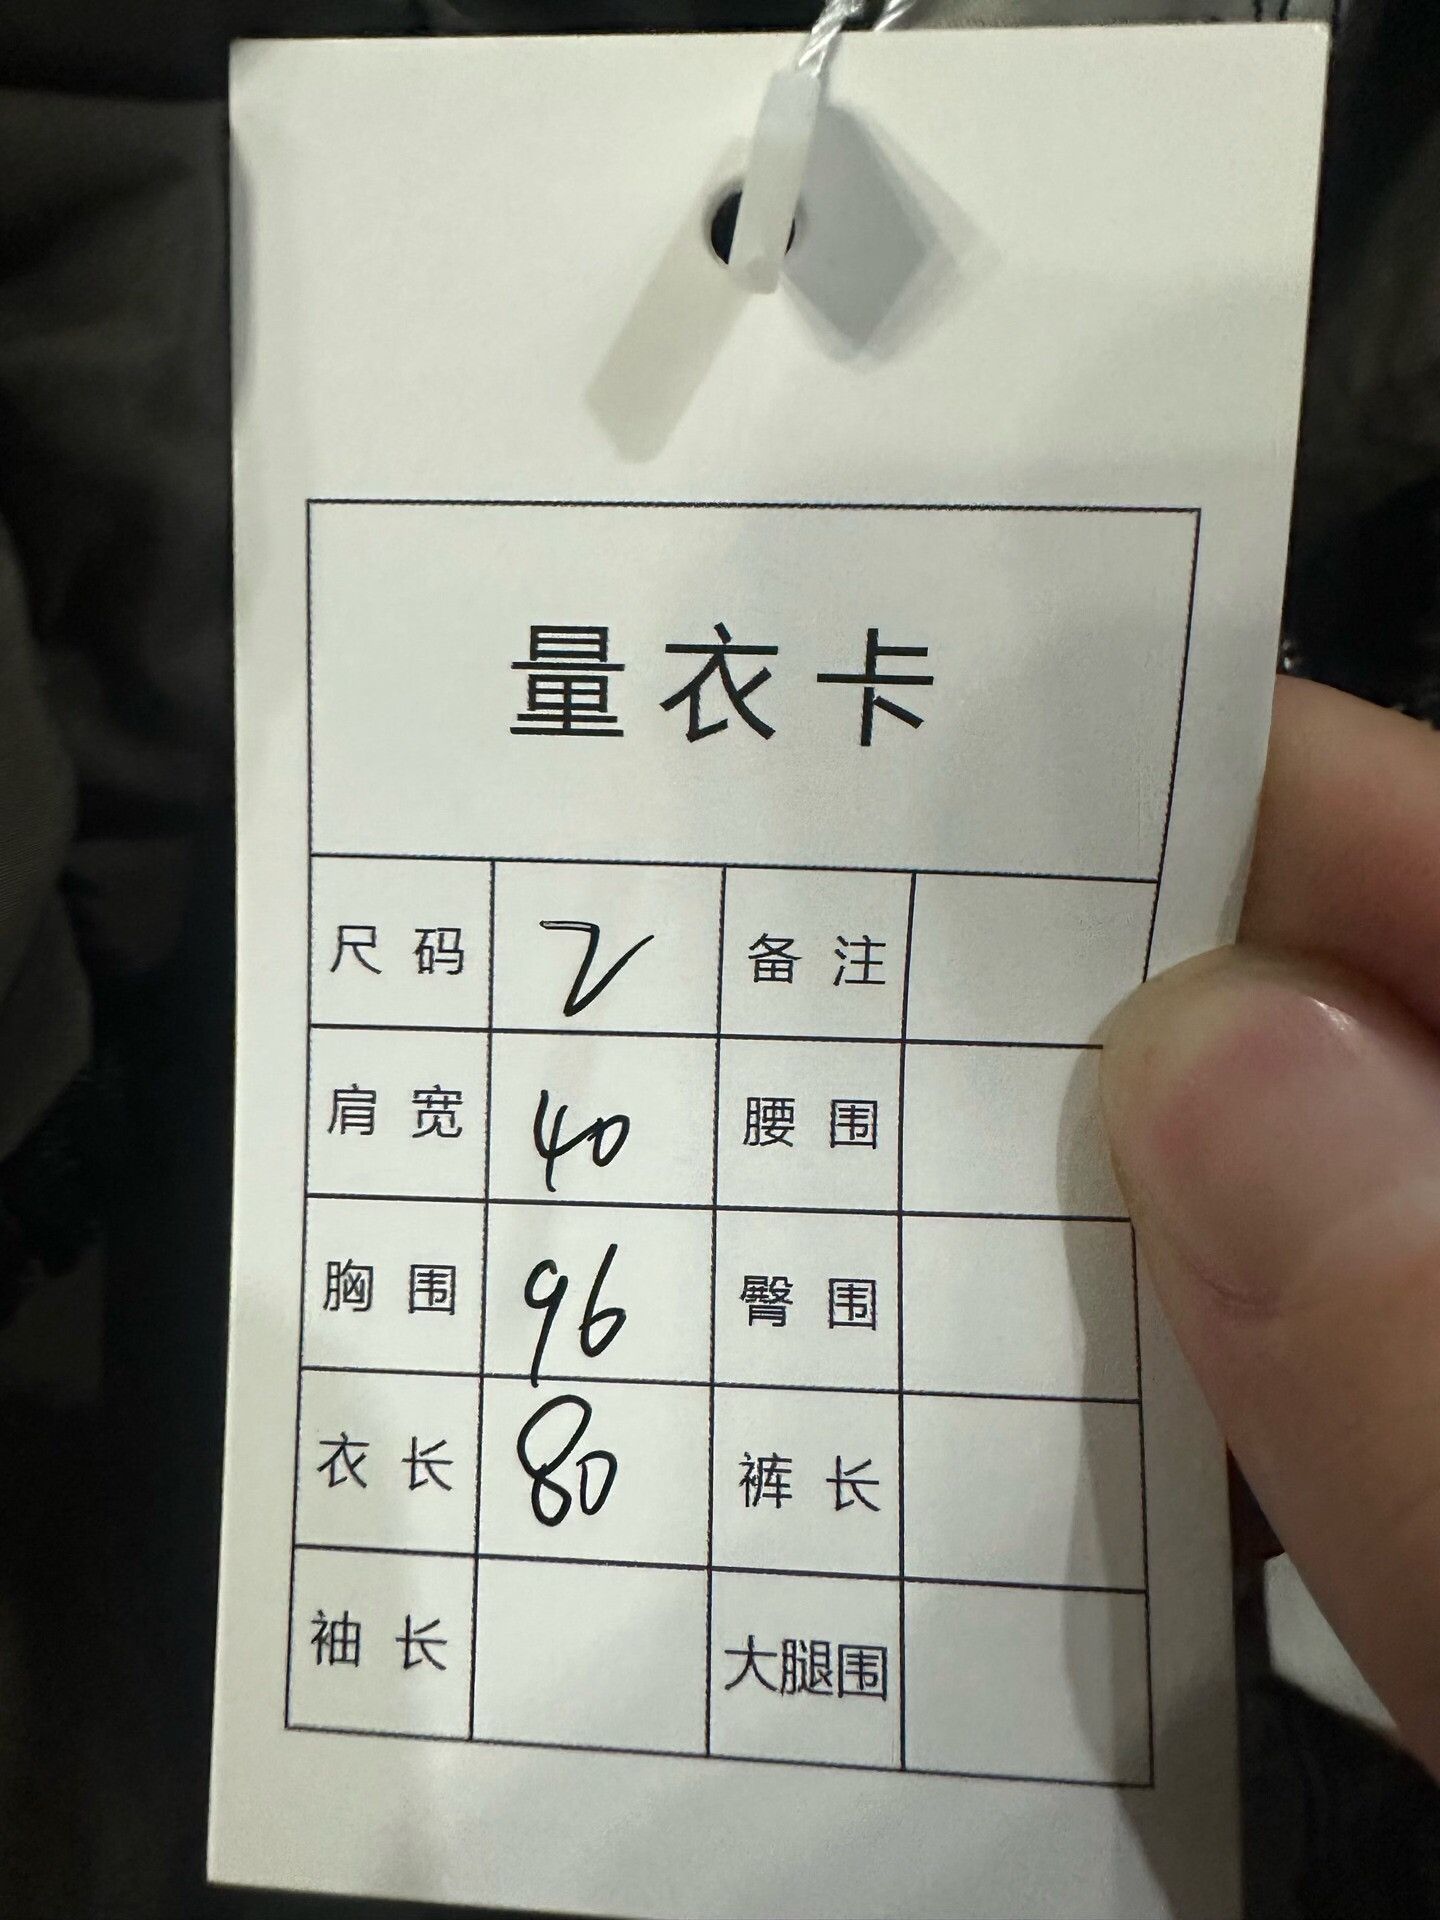 量衣卡
尺码 2 备注
肩宽 40 腰围
胸围 96 臀围
衣长 80 裤长
袖长 大腿围